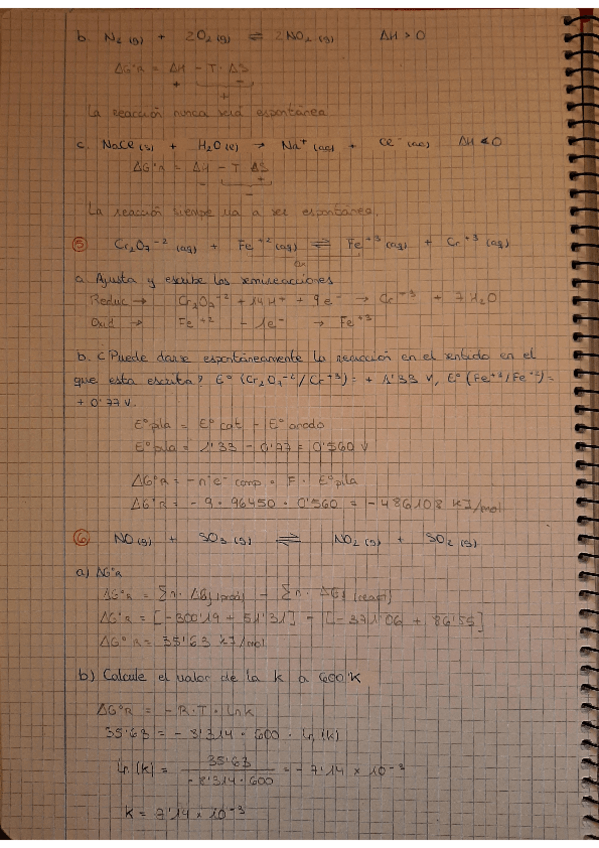 b. N₂ (g) + 2O₂ (g) ⇌ 2NO₂ (g) ΔH > 0
ΔG°R = ΔH - T · ΔS
+ -
+
La reacción nunca será espontánea
c. NaCl (s) + H₂O (l) → Na⁺ (aq) + Cl⁻ (aq) ΔH < 0
ΔG°R = ΔH - T ΔS
- +
-
La reacción siempre va a ser espontánea.
⑤ Cr₂O₇⁻² (aq) + Fe⁺² (aq) ⇌ Fe⁺³ (aq) + Cr⁺³ (aq)
a. Ajusta y escribe las semireacciones
Reduc → Cr₂O₇⁻² + 14H⁺ + 9e⁻ → Cr⁻³ + 7H₂O
Oxid → Fe⁺² - 1e⁻ → Fe⁺³
b. ¿Puede darse espontáneamente la reacción en el sentido en el
que esta escrita? E° (Cr₂O₇⁻²/Cr⁺³) = + 1'33 V, E° (Fe⁺³/Fe⁺²) =
+ 0'77 V.
E°pila = E° cat - E° anodo
E°pila = 1'33 - 0'77 = 0'560 V
ΔG°R = - n°e⁻ comp · F · E°pila
ΔG°R = - 9 · 96450 · 0'560 = -486108 kJ/mol
⑥ NO (g) + SO₃ (g) ⇌ NO₂ (g) + SO₂ (g)
a) ΔG°R
ΔG°R = Σn · ΔGf (prod) - Σn · ΔGf (reap)
ΔG°R = [-300'19 + 51'31] - [-371'06 + 86'55]
ΔG°R = 35'63 kJ/mol
b) Calcule el valor de la k a 600 K
ΔG°R = - R · T · ln k
35'63 = - 8'314 · 600 · ln (k)
ln (k) = 35'63 / -8'314 · 600 = - 7'14 x 10⁻³
k = 7'14 x 10⁻³